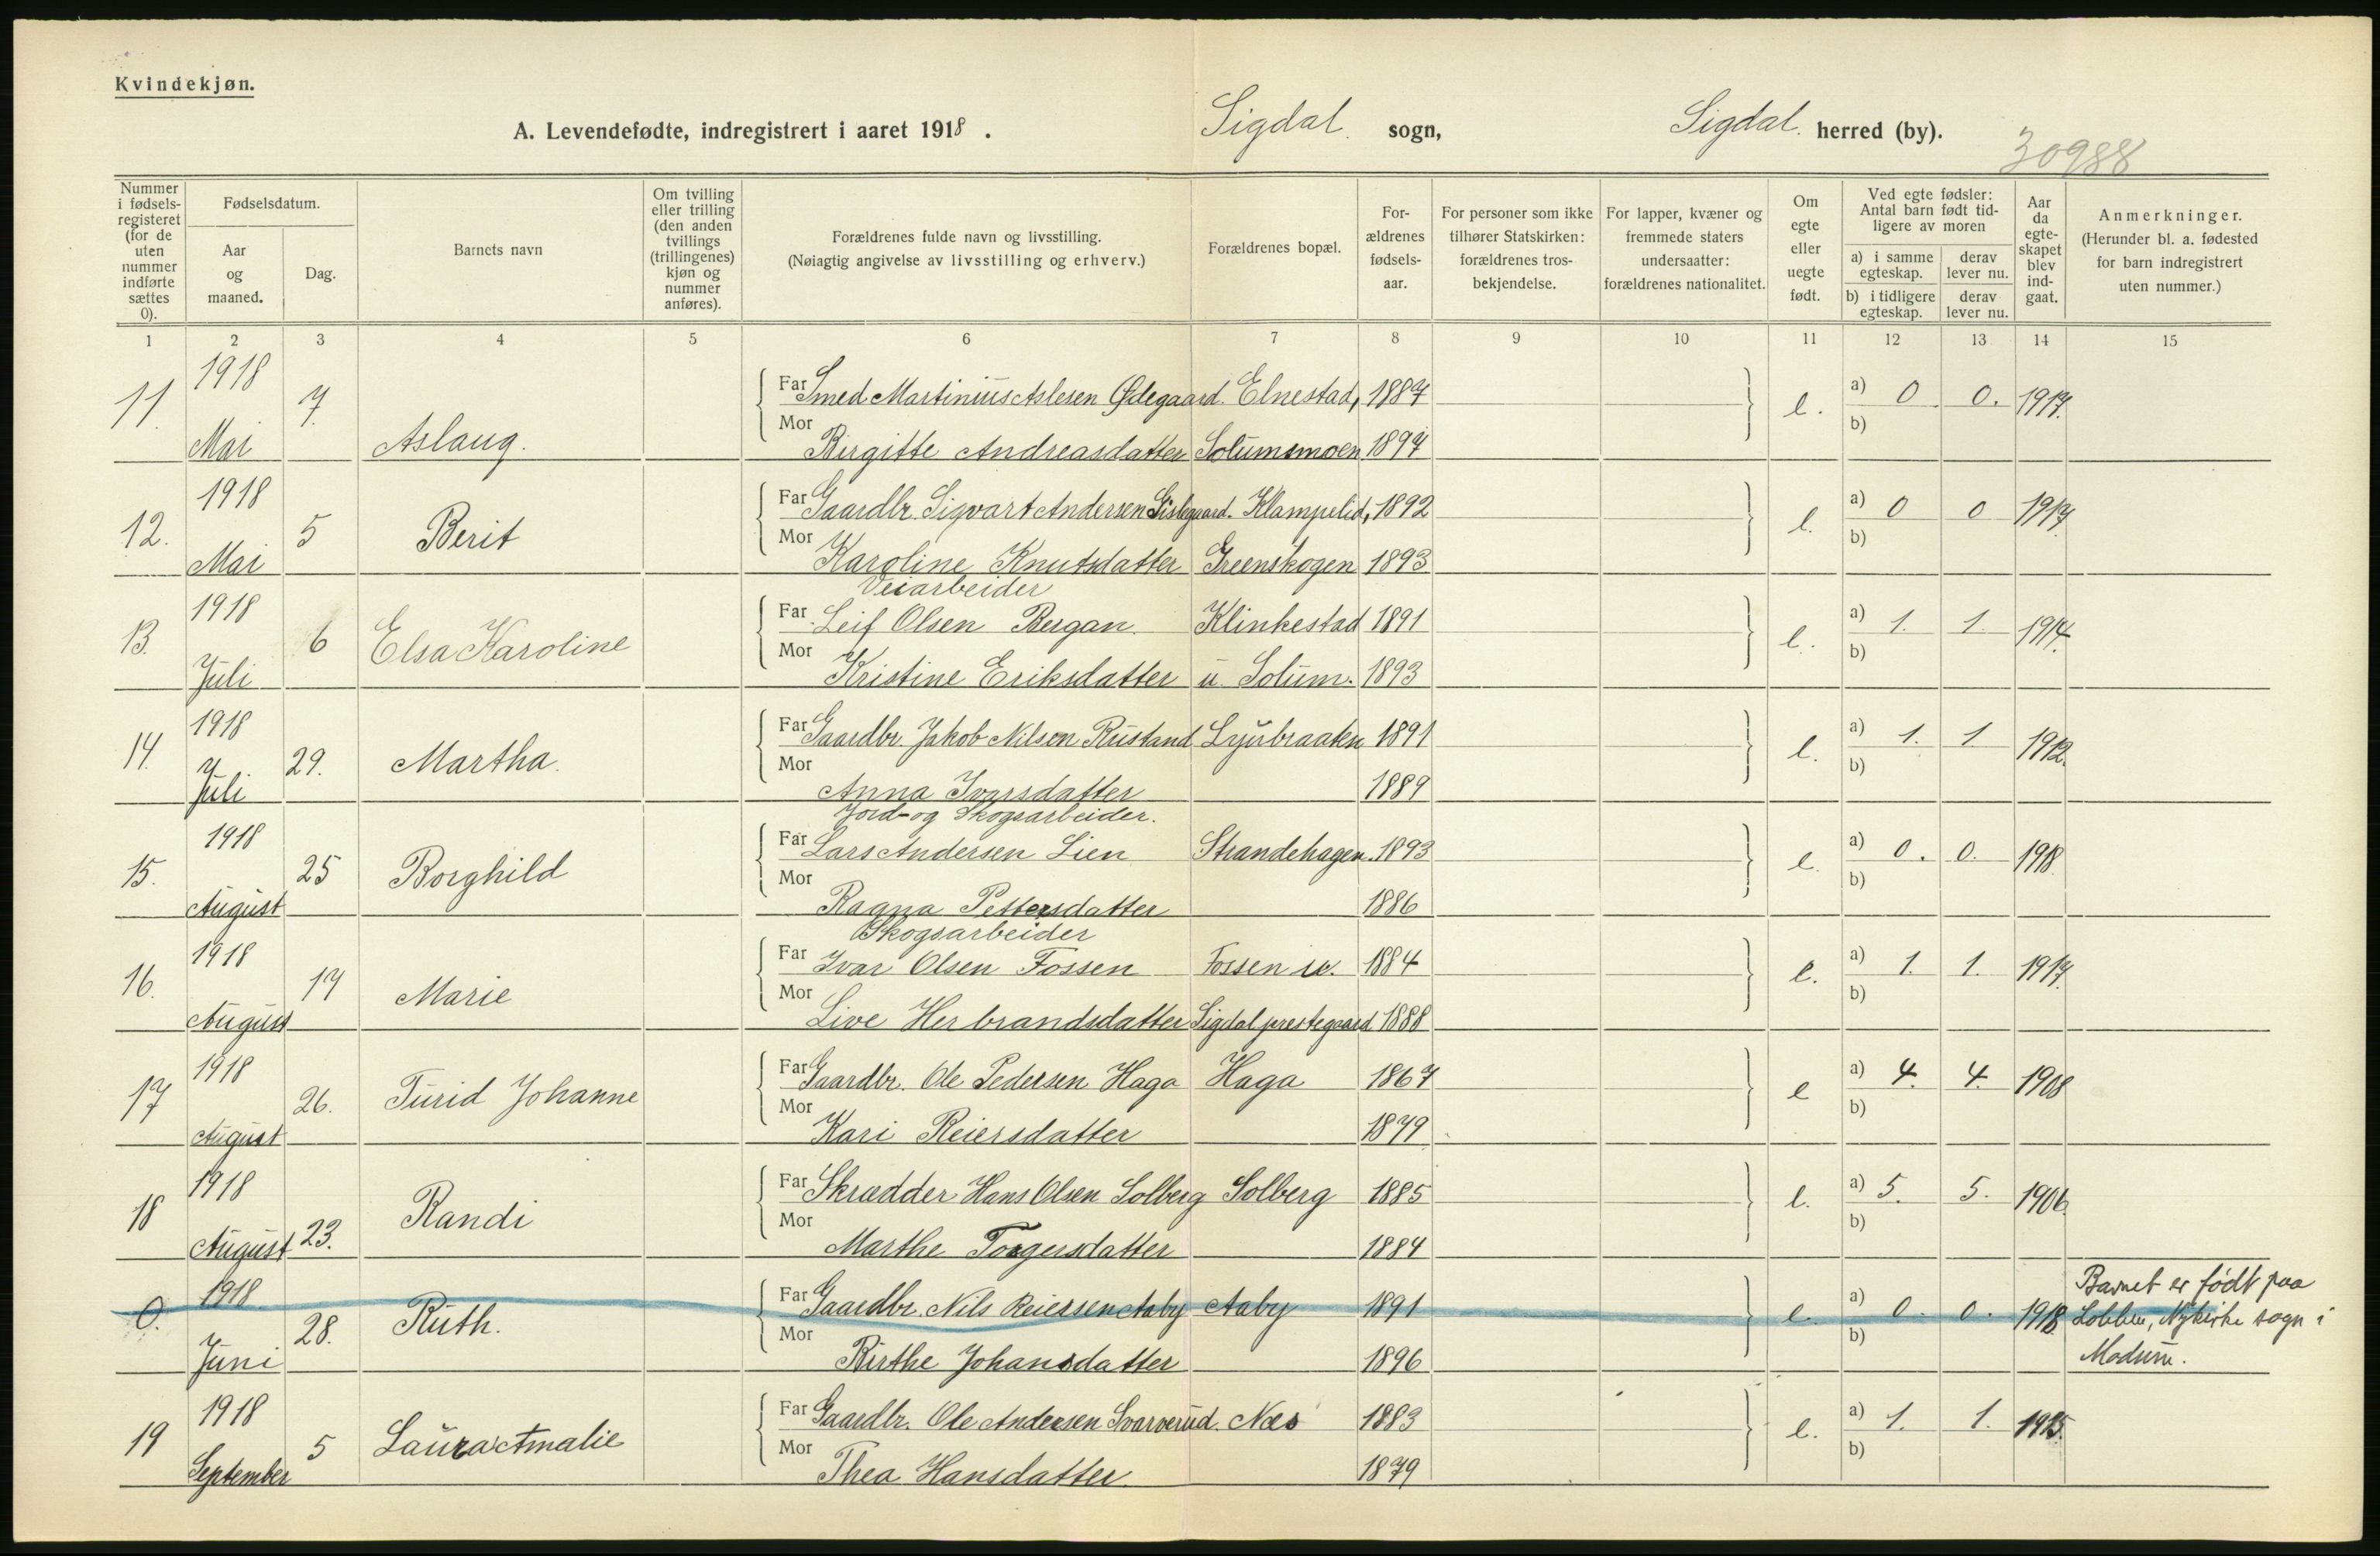 Kvindekjøn.
A. Levendefødte, indregistrert i aaret 1918. Sigdal sogn, Sigdal herred (by).
30988
Nummer i fødselsregisteret (for de uten nummer indførte sættes 0).
Fødselsdatum.
Aar og maaned.
Dag.
Barnets navn
Om tvilling eller trilling (den anden tvillings (trillingenes) kjøn og nummer anføres).
Forældrenes fulde navn og livsstilling.
(Nøiagtig angivelse av livsstilling og erhverv.)
Forældrenes bopæl.
Forældrenes fødselsaar.
For personer som ikke tilhører Statskirken: forældrenes trosbekjendelse.
For lapper, kvæner og fremmede staters undersaatter: forældrenes nationalitet.
Om egte eller uegte født.
Ved egte fødsler: Antal barn født tidligere av moren
a) i samme egteskap. derav lever nu.
b) i tidligere egteskap. derav lever nu.
Aar da egteskapet blev indgaat.
Anmerkninger.
(Herunder bl. a. fødested for barn indregistrert uten nummer.)
1 2 3 4 5 6 7 8 9 10 11 12 13 14 15
11. 1918 Mai 7. Aslaug.
Far Smed Martinius Aslesen Ødegaard. Elnestad, 1887 e. a) 0 0. 1917.
Mor Birgitte Andreasdatter Solumsmoen 1897 b)
12. 1918 Mai 5 Berit
Far Gaardbr. Sigvart Andersen Sislegaard. Klampelid, 1892 e. a) 0 0 1917.
Mor Karoline Knutsdatter Greenskogen 1893 b)
13. 1918 Juli 6 Elsa Karoline
Veiarbeider
Far Leif Olsen Bergan. Klinkestad 1891 e. a) 1. 1. 1914.
Mor Kristine Eriksdatter u. Solum. 1893 b)
14. 1918 Juli 29. Martha.
Far Gaardbr. Jakob Nilsen Rustand Lyubraaten 1891 e. a) 1. 1 1912.
Mor Anna Ivarsdatter 1889 b)
15. 1918 August 25 Borghild
Jord- og Skogsarbeider.
Far Lars Andersen Lien Strandehagen. 1893 e. a) 0. 0. 1918.
Mor Ragna Pettersdatter 1886 b)
16. 1918 August 17 Marie
Skogsarbeider
Far Ivar Olsen Fossen Fossen u. 1884 e. a) 1. 1. 1917.
Mor Live Herbrandsdatter Sigdal prestegaard 1888 b)
17 1918 August 26. Turid Johanne
Far Gaardbr. Ole Pedersen Haga Haga 1867 e a) 4. 4. 1908
Mor Kari Reiersdatter 1879 b)
18 1918 August 23. Randi
Far Skrædder Hans Olsen Solberg Solberg 1885 e. a) 5. 5. 1906.
Mor Marthe Torgersdatter 1884 b)
0. 1918 Juni 28. Ruth.
Far Gaardbr. Nils Reiersen Aaby Aaby 1891 e. a) 0. 0. 1918.
Mor Birthe Johansdatter 1896 b)
Barnet er født paa
Lobben, Nykirke sogn i
Modum.
19 1918 September 5 Laura Amalie
Far Gaardbr. Ole Andersen Svarverud. Næs 1883 e. a) 1. 1. 1915.
Mor Thea Hansdatter. 1879 b)